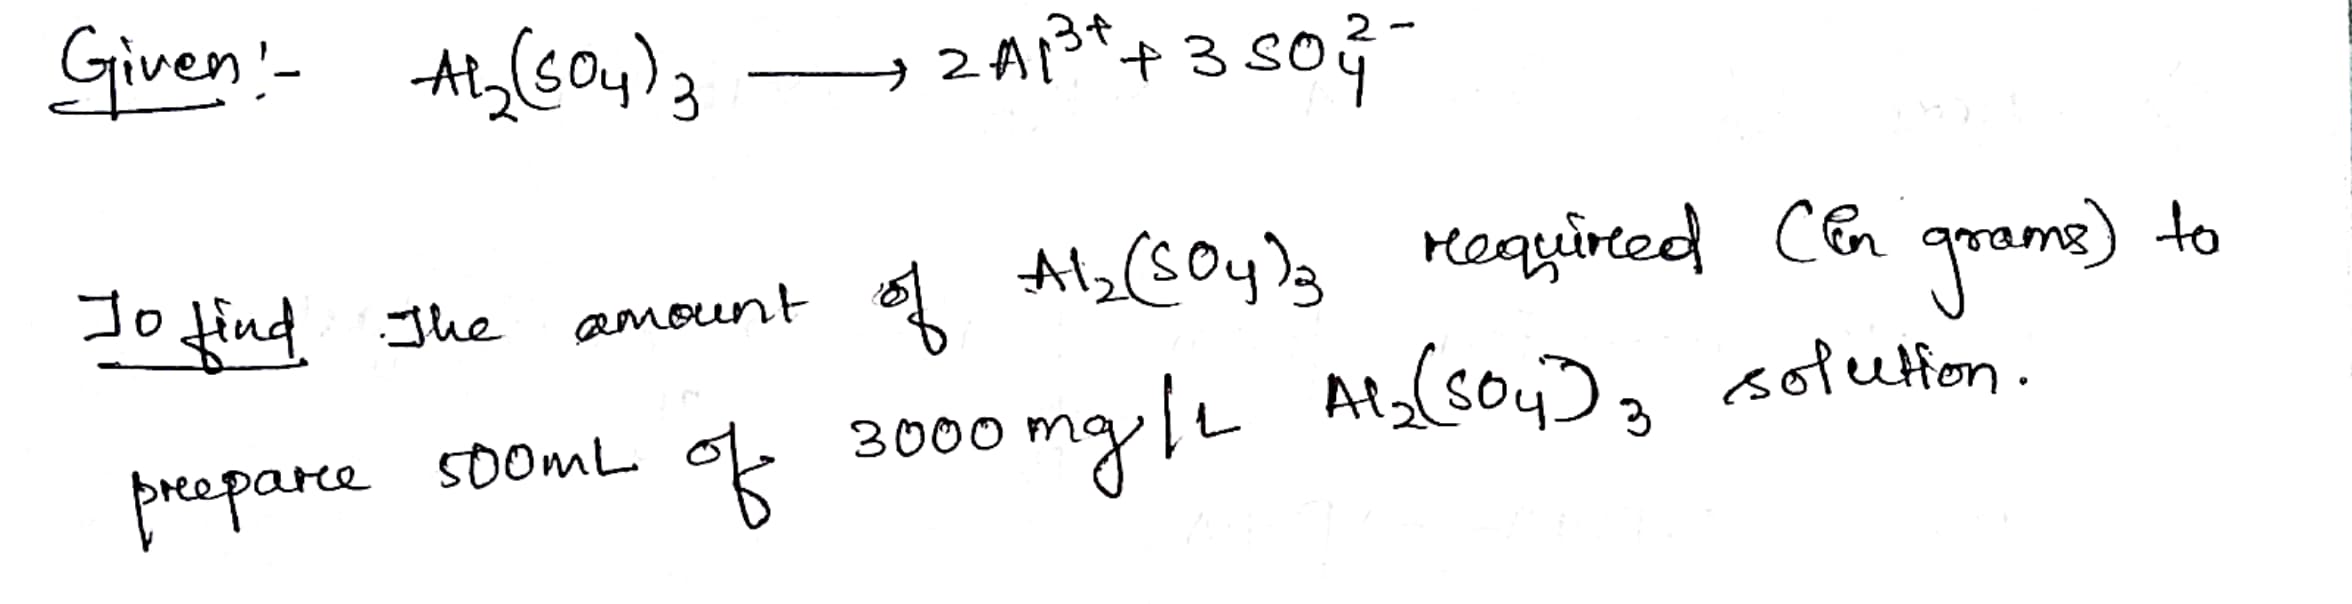 Given:- Al₂(SO₄)₃ ⟶ 2Al³⁺ + 3SO₄²⁻
To find The amount of Al₂(SO₄)₃ required (in grams) to
prepare 500mL of 3000 mg/L Al₂(SO₄)₃ solution.